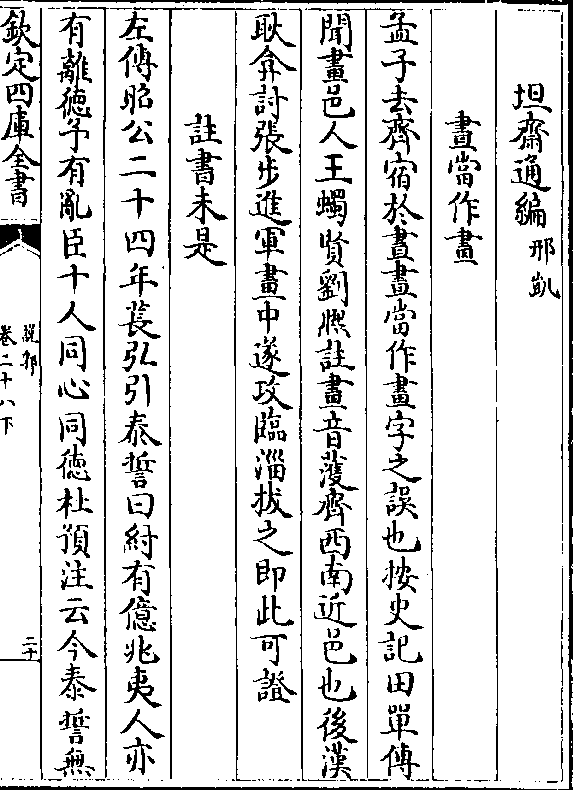 坦齋通編 邢凱
晝當作畫
孟子去齊宿於晝晝當作畫字之誤也按史記田單傳
聞畫邑人王蠋賢劉熈註畫音薙齊西南近邑也後漢
耿弇討張步進軍畫中遂攻臨淄拔之即此可證
註書未是
左傳昭公二十四年萇弘引泰誓曰紂有億兆夷人亦
有離德予有亂臣十人同心同德杜預注云今泰誓無
欽定四庫全書
說郛
卷二十八下
二十